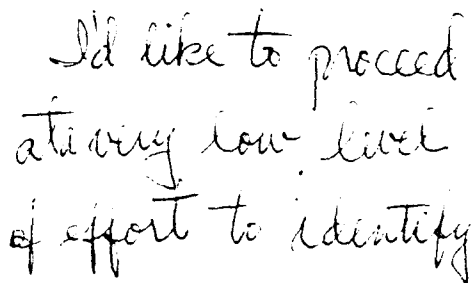 I'd like to proceed
at a very low level
of effort to identify